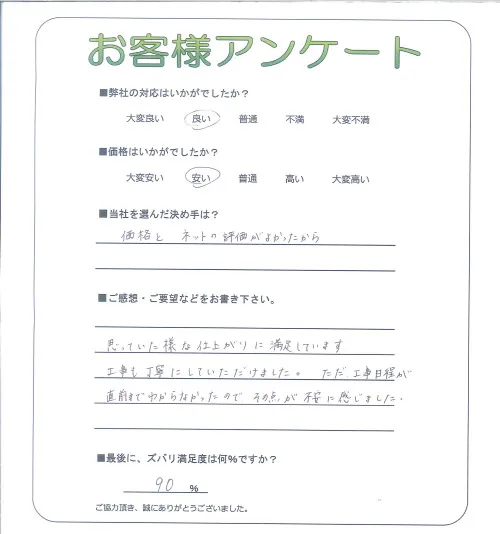 お客様アンケート
■弊社の対応はいかがでしたか？
大変良い 良い 普通 不満 大変不満
■価格はいかがでしたか？
大変安い 安い 普通 高い 大変高い
■当社を選んだ決め手は？
価格と ネットの評価がよかったから
■ご感想・ご要望などをお書き下さい。
思っていた様な仕上がりに満足しています
工事も丁寧にしていただけました。 ただ工事日程が
直前までわからなかったので その点が不安に感じました.
■最後に、ズバリ満足度は何%ですか？
90 %
ご協力頂き、誠にありがとうございました。